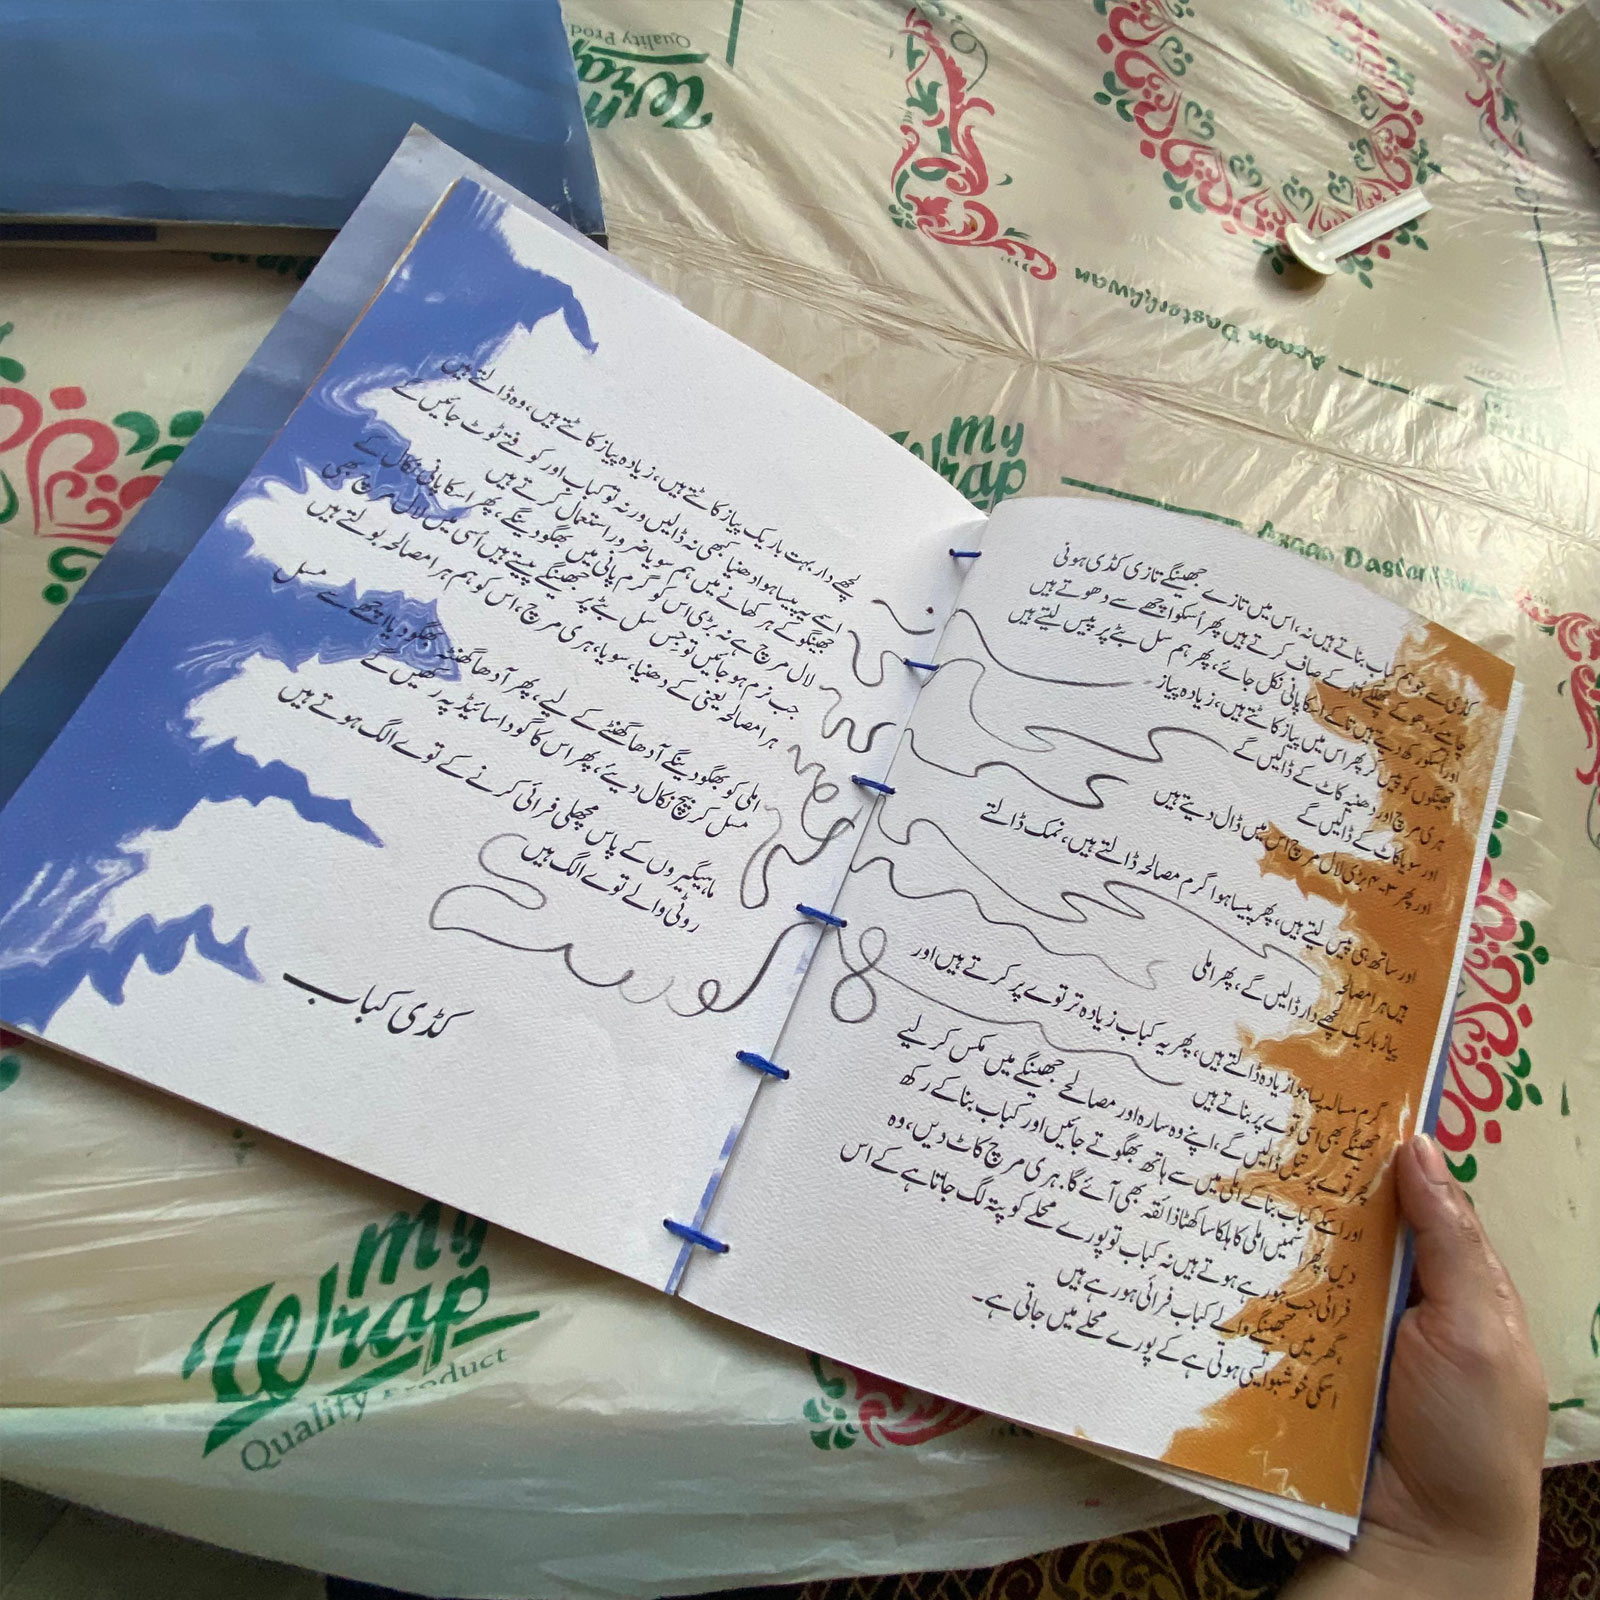 کڈی سے جو ہم کباب بناتے ہیں نہ، اس میں تازے جھینگے تازی کڈی ہونی
چاہئے، دھو کے چھلکے اتار کے صاف کرتے ہیں پھر اُسکو اچھے سے دھوتے ہیں
اور اسکو رکھ دیتے ہیں تا کے اسکا پانی نکل جائے، پھر ہم سل بٹے پر پیس لیتے ہیں
جھینگوں کو پیس کر پھر اس میں پیاز کاٹتے ہیں، زیادہ پیاز
ہری مرچ اور دھنیہ کاٹ کے ڈالیں گے
اور سویا کاٹ کے ڈالیں گے
اور پھر ۳-۴ بڑی لال مرچ اس میں ڈال دیتے ہیں
اور ساتھ ہی پیس لیتے ہیں، پھر پیسا ہوا گرم مصالحہ ڈالتے ہیں، نمک ڈالتے
ہیں ہرا مصالحہ
پیاز باریک لچھے دار ڈالیں گے، پھر املی
گرم مسالہ پسا ہوا زیادہ ڈالتے ہیں، پھر یہ کباب زیادہ تر توے پر کرتے ہیں اور
جھینگے بھی اسی توے پر بناتے ہیں
پھر توے پر تیل ڈالیں گے، اپنے وہ سارہ اور مصالحے جھینگے میں مکس کر لیے
اور اسکے کباب بنا کے املی میں سے ہاتھ بھگوتے جائیں اور کباب بنا کے رکھ
دیں، پھر اسمیں املی کا ہلکا سا کھٹا ذائقہ بھی آئے گا. ہری مرچ کاٹ دیں، وہ
فرائی جب ہو رہے ہوتے ہیں نہ کباب تو پورے محلے کو پتہ لگ جاتا ہے کے اس
گھر میں جھینگے والے کباب فرائی ہو رہے ہیں
اسکی خوشبو ایسی ہوتی ہے کے پورے محلے میں جاتی ہے۔
لچھے دار، بہت باریک پیاز کاٹتے ہیں، زیادہ پیاز کاٹتے ہیں، وہ ڈالتے ہیں
اسے یہ پیسا ہوا دھنیا کبھی نہ ڈالیں ورنہ تو کباب اور کوفتے ٹوٹ جائیں گے
جھینگو کے ہر کھانے میں ہم سویا ضرور استعمال کرتے ہیں
لال مرچ ہے نہ بڑی اس کو گرم پانی میں بھگو دینگے، پھر اسکا پانی نکال کے
جب نرم ہو جائیں تو جس سل بٹے پر جھینگے پیستے ہیں اُسی میں لال مرچ بھی
ہرا مصالحہ یعنی کے دھنیا، سویا، ہری مرچ، اس کو ہم ہرا مصالحہ بولتے ہیں
املی کو بھگو دینگے آدھا گھنٹے کے لیے، پھر آدھا گھنٹہ بھگو دیا اچھے سے مسل
مسل کر بیچ نکال دیئے، پھر اس کا گودا سائیڈ پہ رکھیں گے
ماہیگیروں کے پاس مچھلی فرائی کرنے کے توے الگ ہوتے ہیں
روٹی والے توے الگ ہیں
کڈی کباب
My
Wrap
Quality Product
My
Wrap
Dastarkhwan
Wrap
Quality Prod